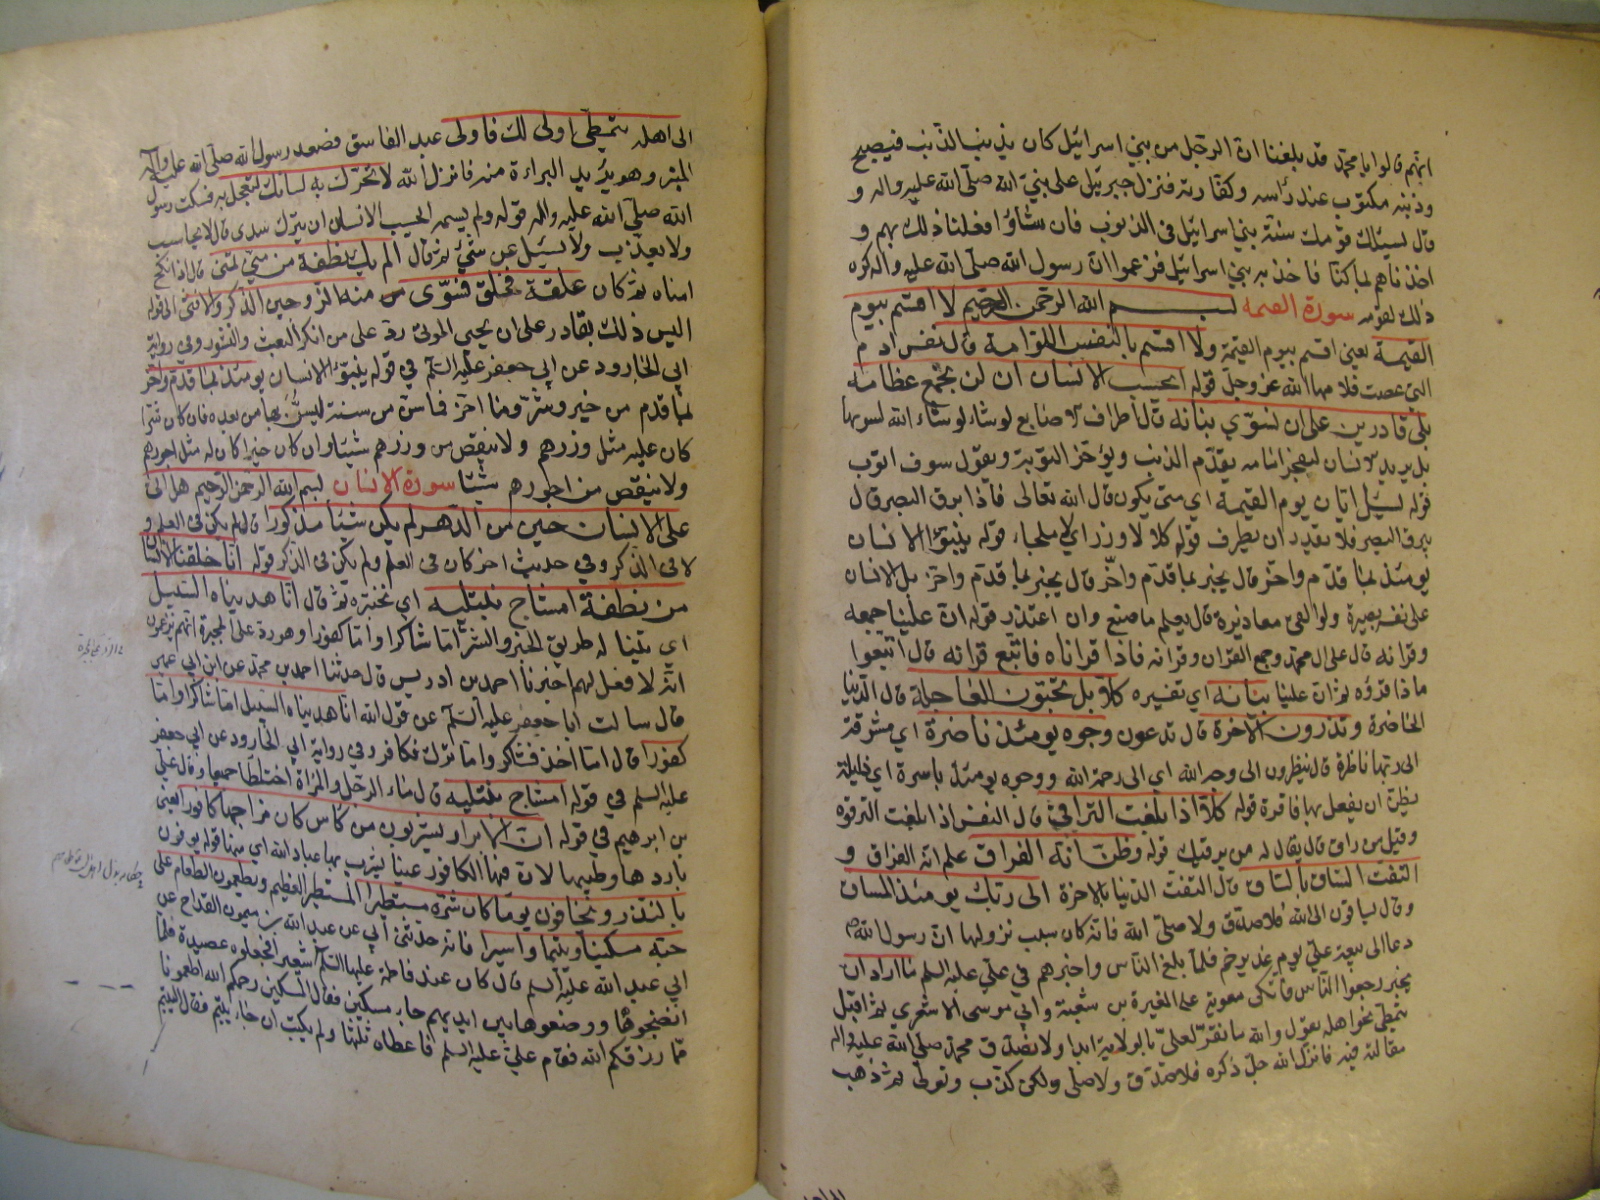 انهم قالوا يا محمد قد بلغنا ان الرجل من بني اسرائيل كان يذنب الذنب فيصبح
وذنبه مكتوب عند راسه وكفارته فنزل جبرئيل على نبي الله صلى الله عليه واله و
قال يسئلك قومك سنة بني اسرائيل في الذنوب فان شاؤا فعلنا ذلك بهم و
اخذناهم بما كنا ناخذ به بني اسرائيل فزعموا ان رسول الله صلى الله عليه واله كره
ذلك لقومه سورة القيمة بسم الله الرحمن الرحيم لا اقسم بيوم
القيمة يعني اقسم بيوم القيمة ولا اقسم بالنفس اللوامة قال نفس ادم
التي عصت فلامها الله عز وجل قوله ايحسب الانسان ان لن نجمع عظامه
بلى قادرين على ان نسوي بنانه قال اطراف الاصابع لو شاء الله لسويها
بل يريد الانسان ليفجر امامه يقدم الذنب ويؤخر التوبة ويقول سوف اتوب
قوله يسئل ايان يوم القيمة اي متى يكون قال الله تعالى فاذا برق البصر قال
يبرق البصر فلا يقدر ان يطرف قوله كلا لا وزر اي لا ملجاء قوله ينبؤ الانسان
يومئذ بما قدم واخر قال يخبر بما قدم واخر قال يخبر بما قدم واخر بل الانسان
على نفسه بصيرة ولو القى معاذيره قال يعلم ما صنع وان اعتذر قوله ان علينا جمعه
وقرانه قال على ال محمد وجمع القران وقرانه فاذا قراناه فاتبع قرانه قال اتبعوا
ماذا قرؤه ثم ان علينا بيانه اي تفسيره كلا بل تحبون العاجلة قال الدنيا
الحاضرة وتذرون الاخرة قال تدعون وجوه يومئذ ناضرة اي مشرقة
الى ربها ناظرة قال ينظرون الى وجه الله اي الى رحمة الله ووجوه يومئذ باسرة اي ذليلة
تظن ان يفعل بها فاقرة قوله كلا اذا بلغت التراقي قال النفس اذا بلغت الترقوة
وقيل من راق قال يقال له من يرقيك قوله وظن انه الفراق علم انه الفراق و
التفت الساق بالساق قال التفت الدنيا بالاخرة الى ربك يومئذ المساق
قال يساقون الى الله فلا صدق ولا صلى الله فانه كان سبب نزولها ان رسول الله ص
دعا الى بيعة علي يوم غدير خم فلما بلغ الناس واخبرهم في علي عليه السلم ما اراد ان
يخبر رجعوا الناس فاتكى معوية على المغيرة بن شعبة وابي موسى الاشعري ثم اقبل
يتمطى نحو اهله يقول والله ما نقر لعلي بالولاية ابدا ولا نصدق محمد صلى الله عليه واله
مقالته فيه فانزل الله جل ذكره فلا صدق ولا صلى ولكن كذب وتولى ثم ذهب
الى اهله يتمطى اولى لك فاولى عبد الفاسق فصعد رسول الله صلى الله عليه واله
المنبر وهو يريد البراءة منه فانزل الله لا تحرك به لسانك لتعجل به فسكت رسول
الله صلى الله عليه واله قوله ولم يسمه ايحسب الانسان ان يترك سدى قال لا يحاسب
ولا يعذب ولا يسئل عن شئ ثم قال الم يك نطفة من مني تمنى قال اذا نكح
امناه ثم كان علقة فخلق فسوى منه الزوجين الذكر والانثى الى قوله
اليس ذلك بقادر على ان يحيي الموتى رد على من انكر البعث والنشور وفي رواية
ابي الجارود عن ابي جعفر عليه السلم في قوله ينبؤ الانسان يومئذ بما قدم واخر
بما قدم من خير وشر وما اخر فما سن من سنة ليستن بها من بعده فان كان شرا
كان عليه مثل وزرهم ولا ينقص من وزرهم شيئا وان كان خيرا كان له مثل اجورهم
ولا ينقص من اجورهم شيئا سورة الانسان بسم الله الرحمن الرحيم هل اتى
على الانسان حين من الدهر لم يكن شيئا مذكورا قال لم يكن في العلم و
لا في الذكر وفي حديث اخر كان في العلم ولم يكن في الذكر قوله انا خلقنا الانسان
من نطفة امشاج نبتليه اي نختبره ثم قال انا هديناه السبيل
اي بينا له طريق الخير والشر اما شاكرا واما كفورا وهو رد على المجبرة انهم يزعمون
انه لا فعل لهم اخبرنا احمد بن ادريس قال حدثنا احمد بن محمد عن ابن ابي عمير
قال سالت ابا جعفر عليه السلم عن قول الله انا هديناه السبيل اما شاكرا واما
كفورا قال اما اخذ فشاكر واما تارك فكافر وفي رواية ابي الجارود عن ابي جعفر
عليه السلم في قوله امشاج نبتليه قال ماء الرجل والمراة اختلطا جميعا وقال علي
بن ابرهيم في قوله ان الابرار يشربون من كاس كان مزاجها كافورا يعني
بردها وطيبها لان فيها الكافور عينا يشرب بها عباد الله اي منها قوله يوفون
بالنذر ويخافون يوما كان شره مستطيرا المستطير العظيم ويطعمون الطعام على
حبه مسكينا ويتيما واسيرا فانه حدثني ابي عن عبد الله بن ميمون القداح عن
ابي عبد الله عليه السلم قال كان عند فاطمة عليها السلم شعير فجعلوه عصيدة فلما
انضجوها ووضعوها بين ايديهم جاء مسكين فقال المسكين رحمكم الله اطعمونا
مما رزقكم الله فقام علي عليه السلم فاعطاه ثلثها ولم يلبث ان جاء يتيم فقال اليتيم